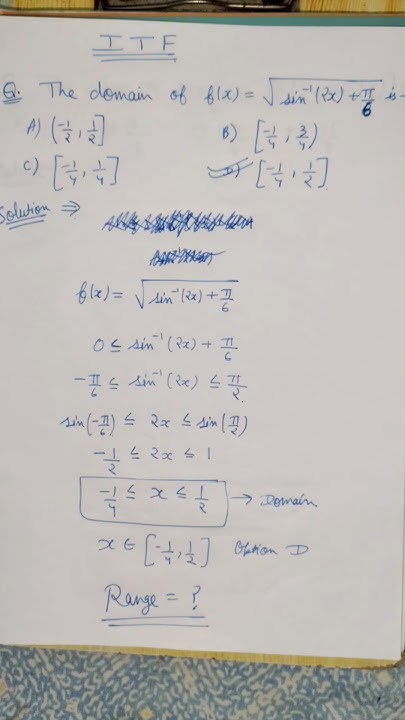 ITF
Q. The domain of f(x) = √(sin⁻¹(2x) + π/6) is -
A) (-1/2, 1/2] B) [-1/4, 3/4)
C) [-1/4, 1/4] D) [-1/4, 1/2]
Solution ⇒
f(x) = √(sin⁻¹(2x) + π/6)
0 ≤ sin⁻¹(2x) + π/6
-π/6 ≤ sin⁻¹(2x) ≤ π/2
sin(-π/6) ≤ 2x ≤ sin(π/2)
-1/2 ≤ 2x ≤ 1
-1/4 ≤ x ≤ 1/2 → Domain
x ∈ [-1/4, 1/2] Option D
Range = ?